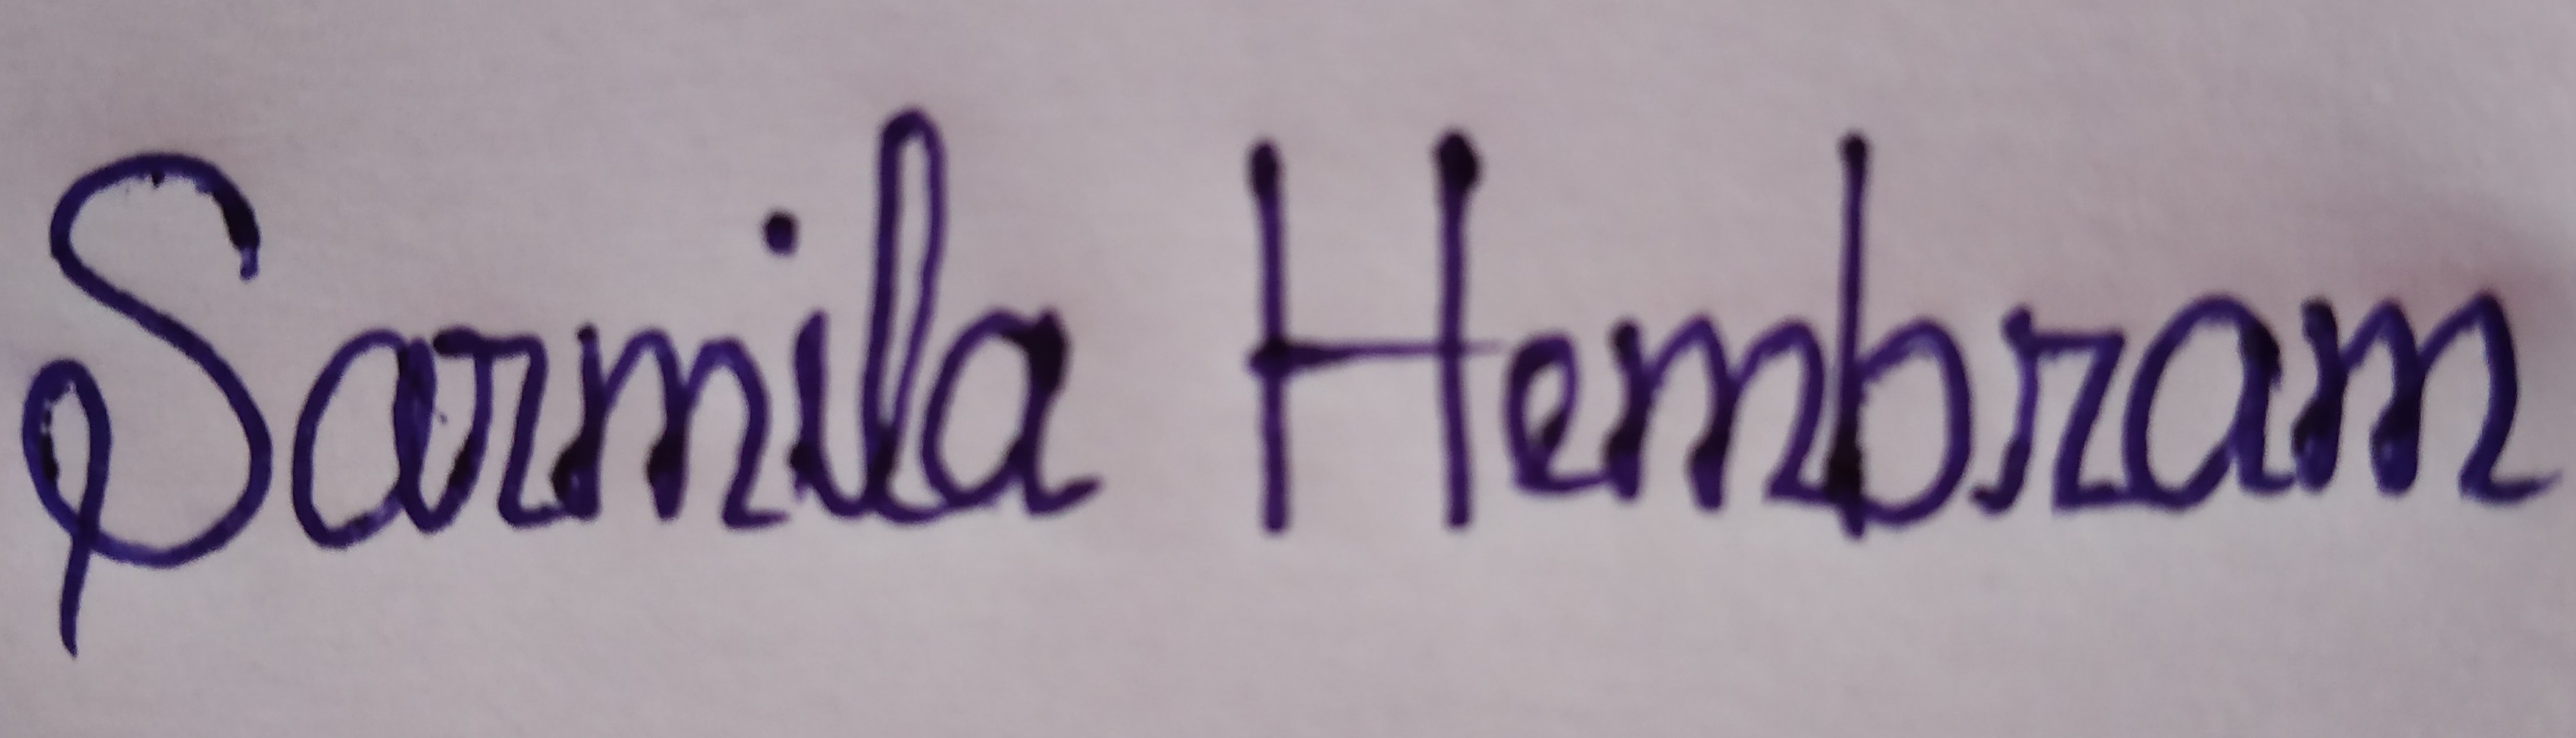 Sarmila Hembram